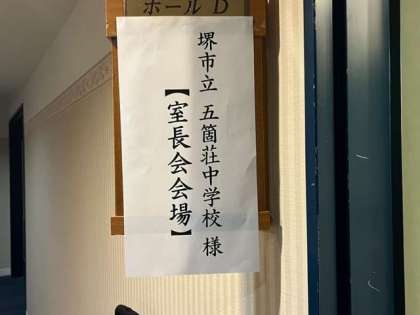 ホール D
堺市立 五箇荘中学校 様
【室長会会場】